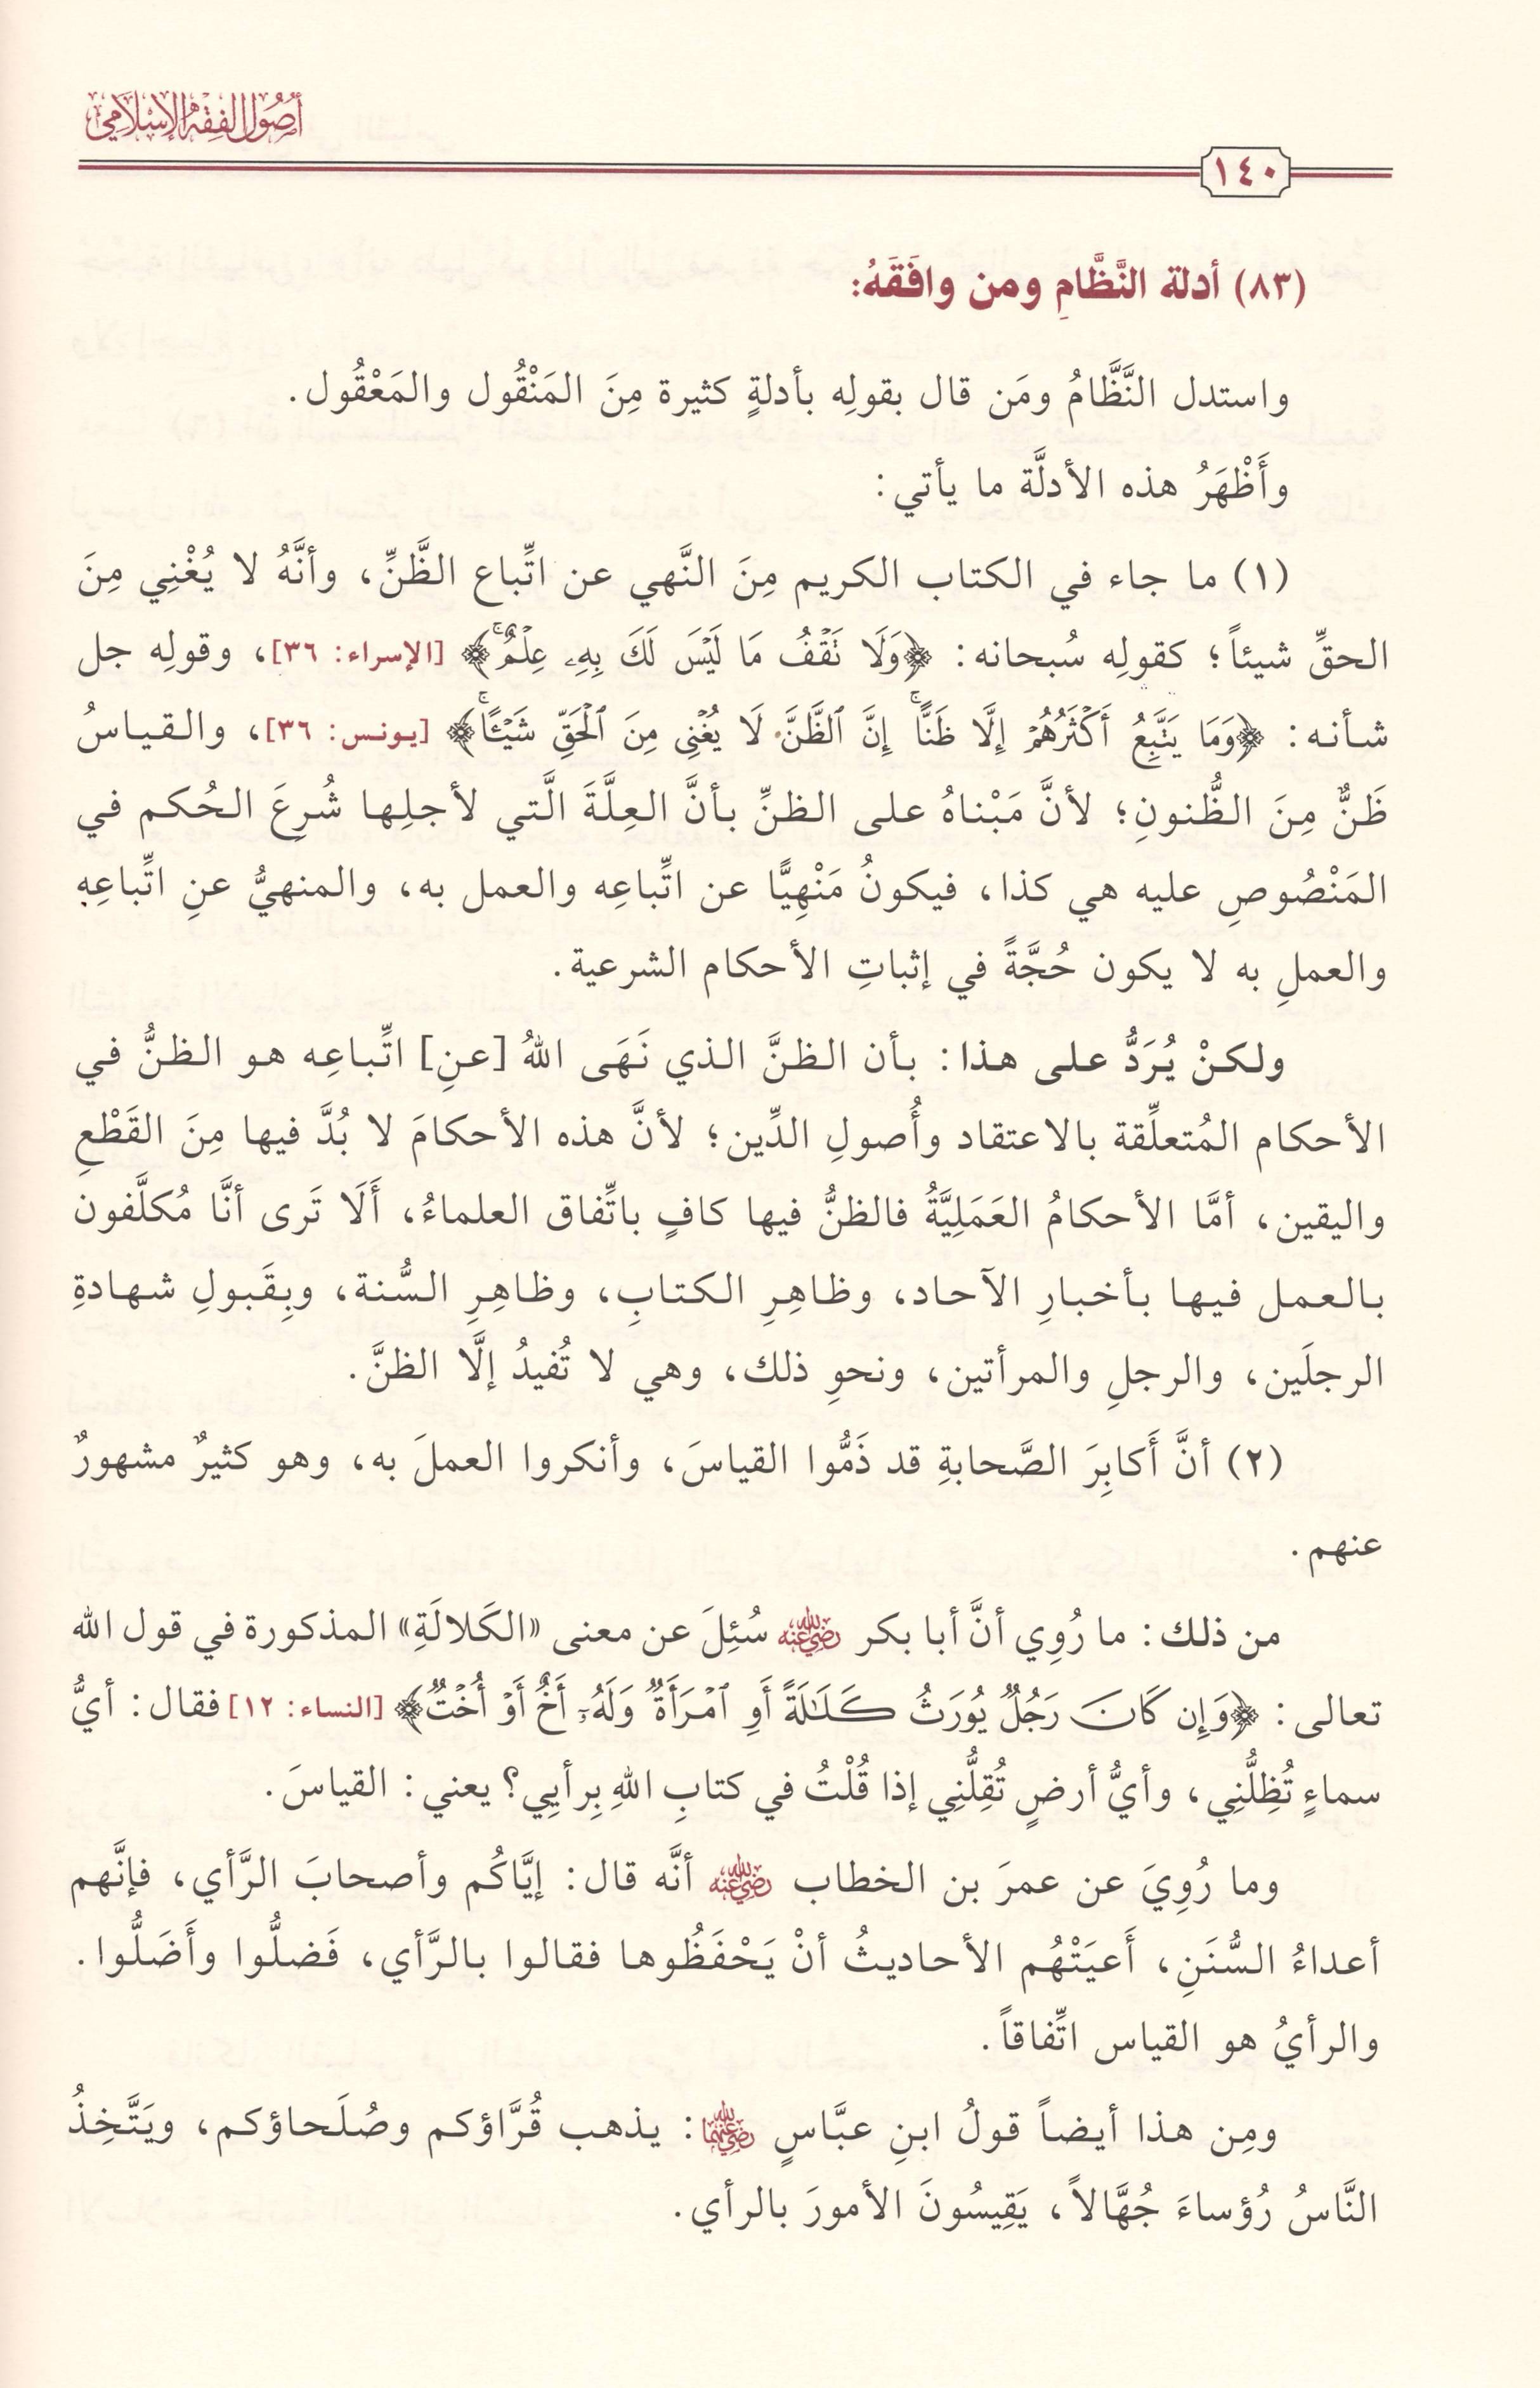 أصول الفقه الإسلامي
١٤٠
(٨٣) أدلة النَّظَّامِ ومن وافَقَهُ:
واستدل النَّظَّامُ ومَن قال بقولِه بأدلةٍ كثيرة مِنَ المَنْقُول والمَعْقُول.
وأَظْهَرُ هذه الأدلَّة ما يأتي:
(١) ما جاء في الكتاب الكريم مِنَ النَّهي عن اتِّباع الظَّنِّ، وأنَّهُ لا يُغْنِي مِنَ
الحقِّ شيئاً؛ كقولِه سُبحانه: ﴿وَلَا نَقْفُ مَا لَيْسَ لَكَ بِهِۦ عِلْمٌ ۚ﴾ [الإسراء: ٣٦]، وقولِه جل
شأنه: ﴿وَمَا يَتَّبِعُ أَكْثَرُهُمْ إِلَّا ظَنًّا ۚ إِنَّ ٱلظَّنَّ لَا يُغْنِى مِنَ ٱلْحَقِّ شَيْـًٔا ۚ﴾ [يونس: ٣٦]، والقياسُ
ظَنٌّ مِنَ الظُّنونِ؛ لأنَّ مَبْناهُ على الظنِّ بأنَّ العِلَّةَ الَّتي لأجلِها شُرِعَ الحُكم في
المَنْصُوصِ عليه هي كذا، فيكونُ مَنْهِيًّا عن اتِّباعِه والعمل به، والمنهيُّ عنِ اتِّباعِهِ
والعملِ به لا يكون حُجَّةً في إثباتِ الأحكام الشرعية.
ولكنْ يُرَدُّ على هذا: بأن الظنَّ الذي نَهَى اللهُ [عنِ] اتِّباعِه هو الظنُّ في
الأحكام المُتعلِّقة بالاعتقاد وأُصولِ الدِّين؛ لأنَّ هذه الأحكامَ لا بُدَّ فيها مِنَ القَطْعِ
واليقين، أمَّا الأحكامُ العَمَلِيَّةُ فالظنُّ فيها كافٍ باتِّفاق العلماءُ، أَلَا تَرى أنَّا مُكلَّفون
بالعمل فيها بأخبارِ الآحاد، وظاهِرِ الكتابِ، وظاهِرِ السُّنة، وبِقَبولِ شهادةِ
الرجلَين، والرجلِ والمرأتين، ونحوِ ذلك، وهي لا تُفيدُ إلَّا الظنَّ.
(٢) أنَّ أَكابِرَ الصَّحابةِ قد ذَمُّوا القياسَ، وأنكروا العملَ به، وهو كثيرٌ مشهورٌ
عنهم.
من ذلك: ما رُوِي أنَّ أبا بكر رضي الله عنه سُئِلَ عن معنى «الكَلالَةِ» المذكورة في قول الله
تعالى: ﴿وَإِن كَانَ رَجُلٌ يُورَثُ كَلَـٰلَةً أَوِ ٱمْرَأَةٌ وَلَهُۥٓ أَخٌ أَوْ أُخْتٌ﴾ [النساء: ١٢] فقال: أيُّ
سماءٍ تُظِلُّنِي، وأيُّ أرضٍ تُقِلُّنِي إذا قُلْتُ في كتابِ اللهِ بِرأيِي؟ يعني: القياسَ.
وما رُوِيَ عن عمرَ بن الخطاب رضي الله عنه أنَّه قال: إيَّاكُم وأصحابَ الرَّأي، فإنَّهم
أعداءُ السُّنَنِ، أَعيَتْهُم الأحاديثُ أنْ يَحْفَظُوها فقالوا بالرَّأي، فَضلُّوا وأَضَلُّوا.
والرأيُ هو القياس اتِّفاقاً.
ومِن هذا أيضاً قولُ ابنِ عبَّاسٍ رضي الله عنهما: يذهب قُرَّاؤكم وصُلَحاؤكم، ويَتَّخِذُ
النَّاسُ رُؤساءَ جُهَّالاً، يَقِيسُونَ الأمورَ بالرأي.